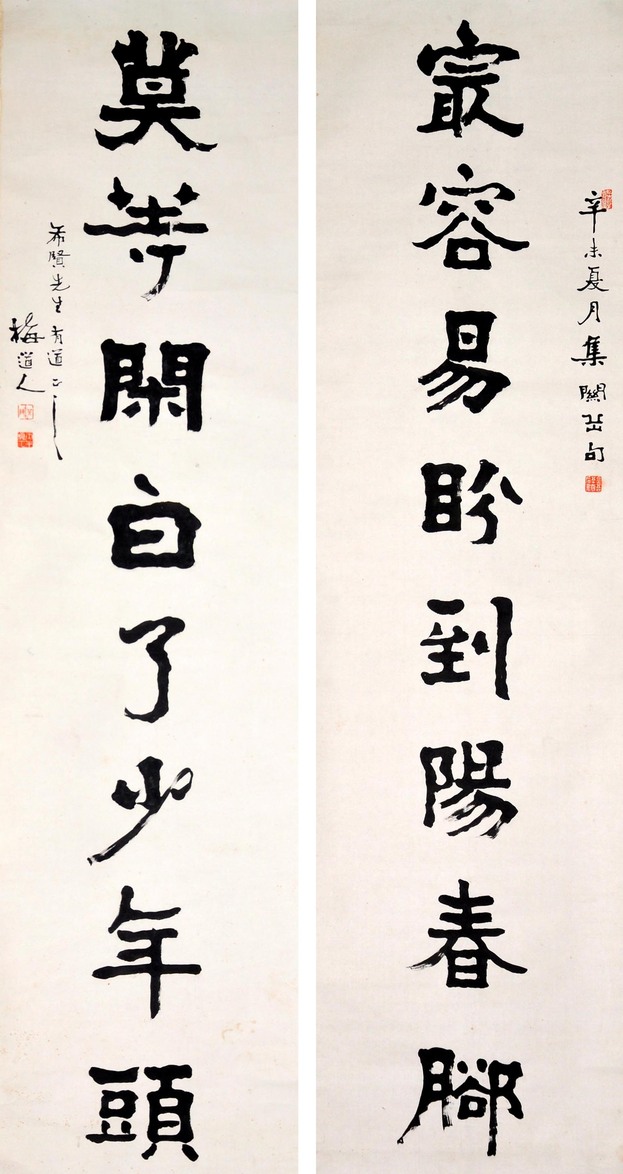 辛未夏月集關岳句
㝡容易盼到陽春腳
莫等閑白了少年頭
希賢先生有道正之
梅道人